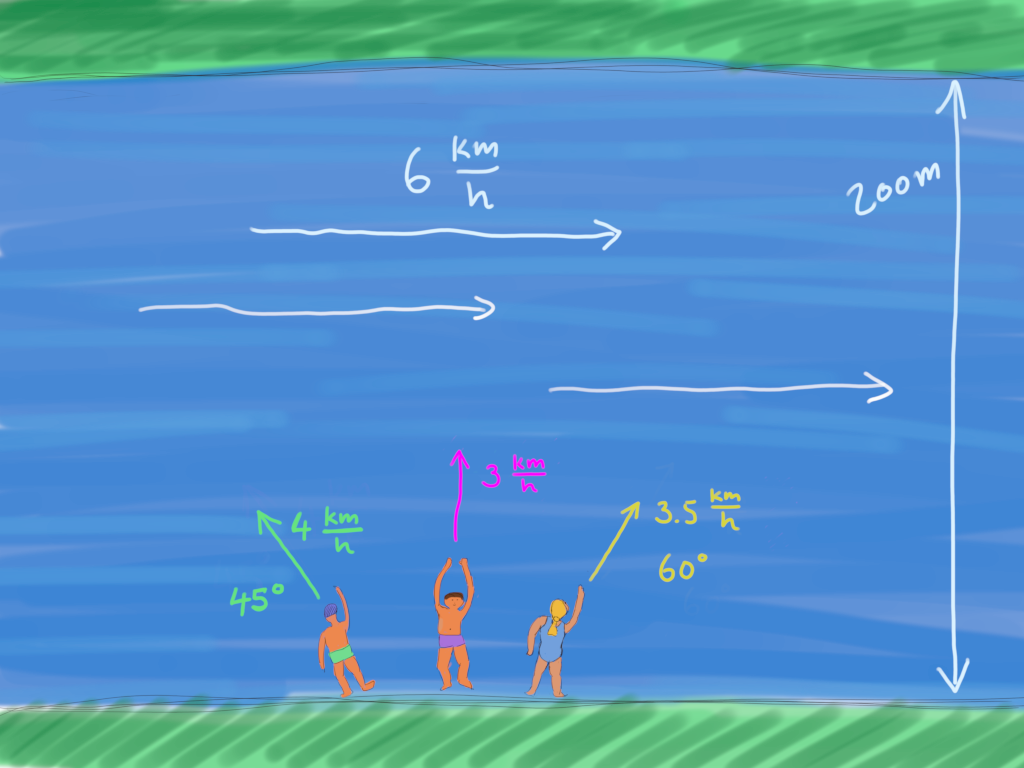 6 km/h
200m
3 km/h
4 km/h
45°
3.5 km/h
60°